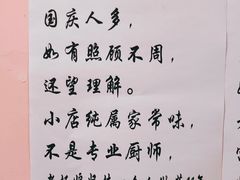 国庆人多，
如有照顾不周，
还望理解。
小店纯属家常味，
不是专业厨师，